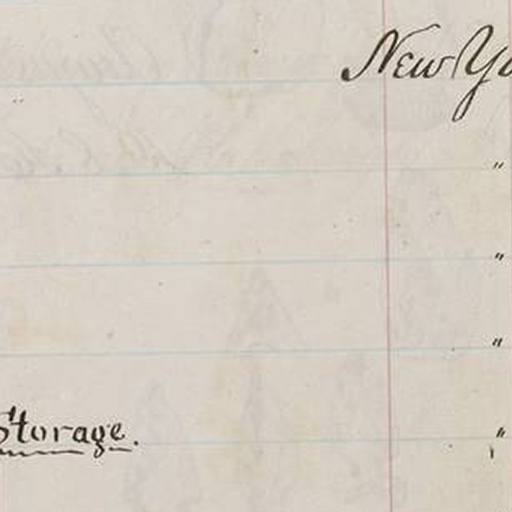 New Yo
"
"
"
Storage. "